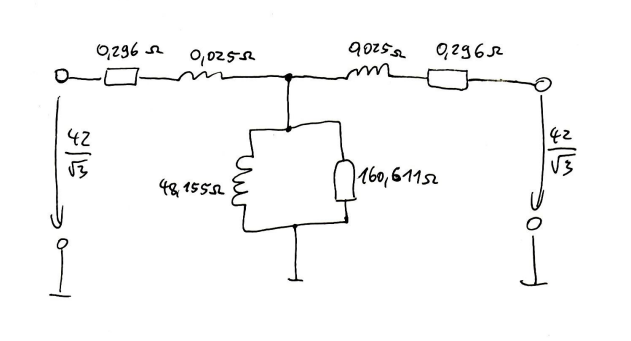 0,296 Ω
0,025 Ω
0,025 Ω
0,296 Ω
42
√3
42
√3
48,155 Ω
160,611 Ω